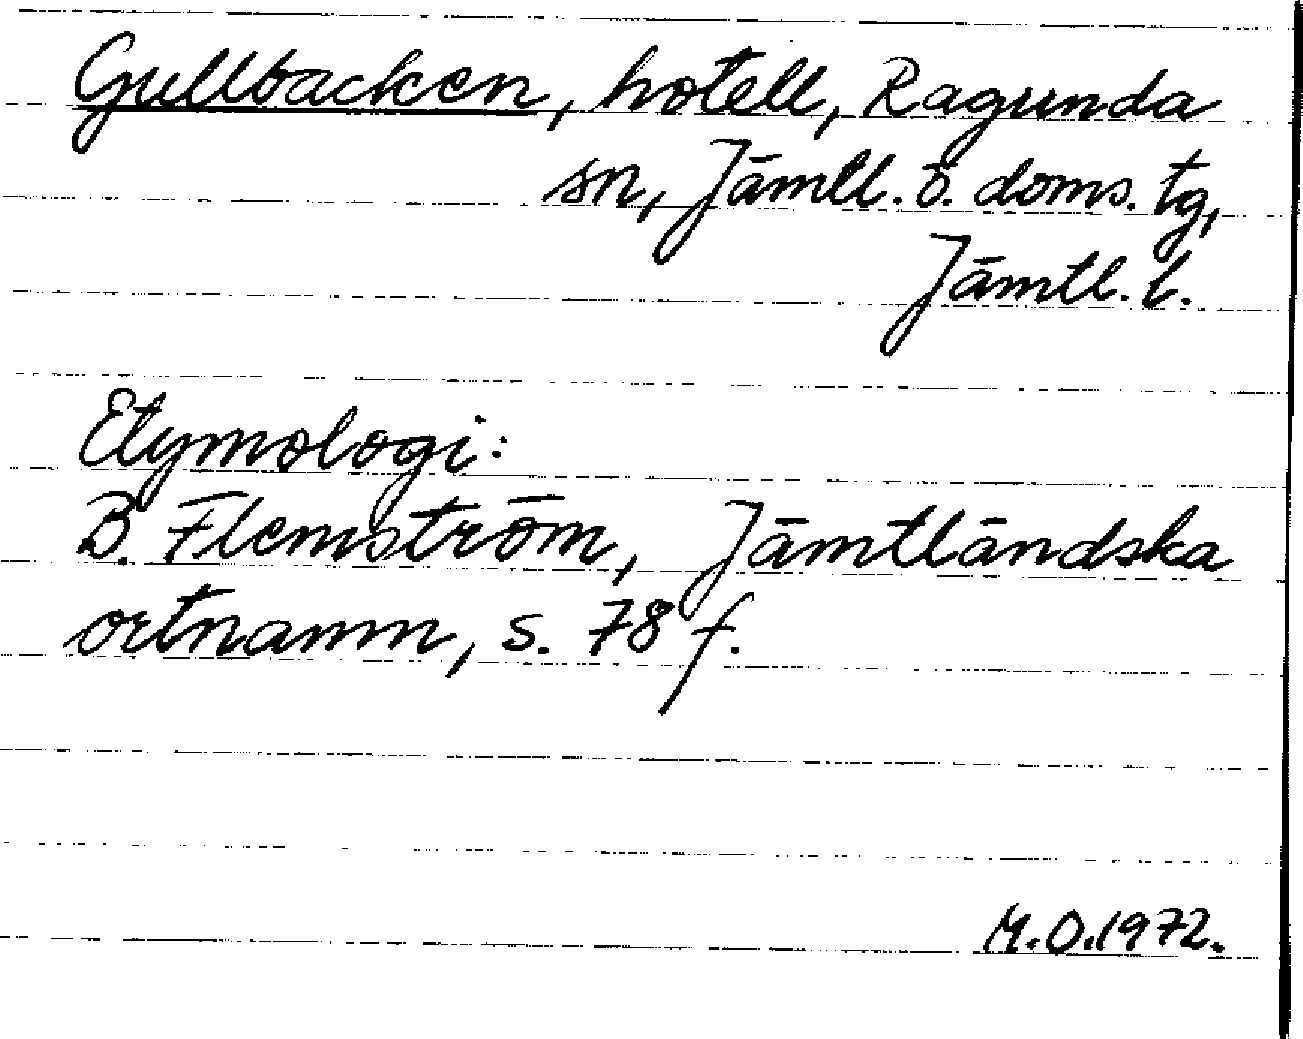 Gullbacken, hotell, Ragunda
sn, Jämtl. ö. doms. tg,
Jämtl. l.
Etymologi:
B. Flemström, Jämtländska
ortnamn, s. 78 f.
M.O.1972.